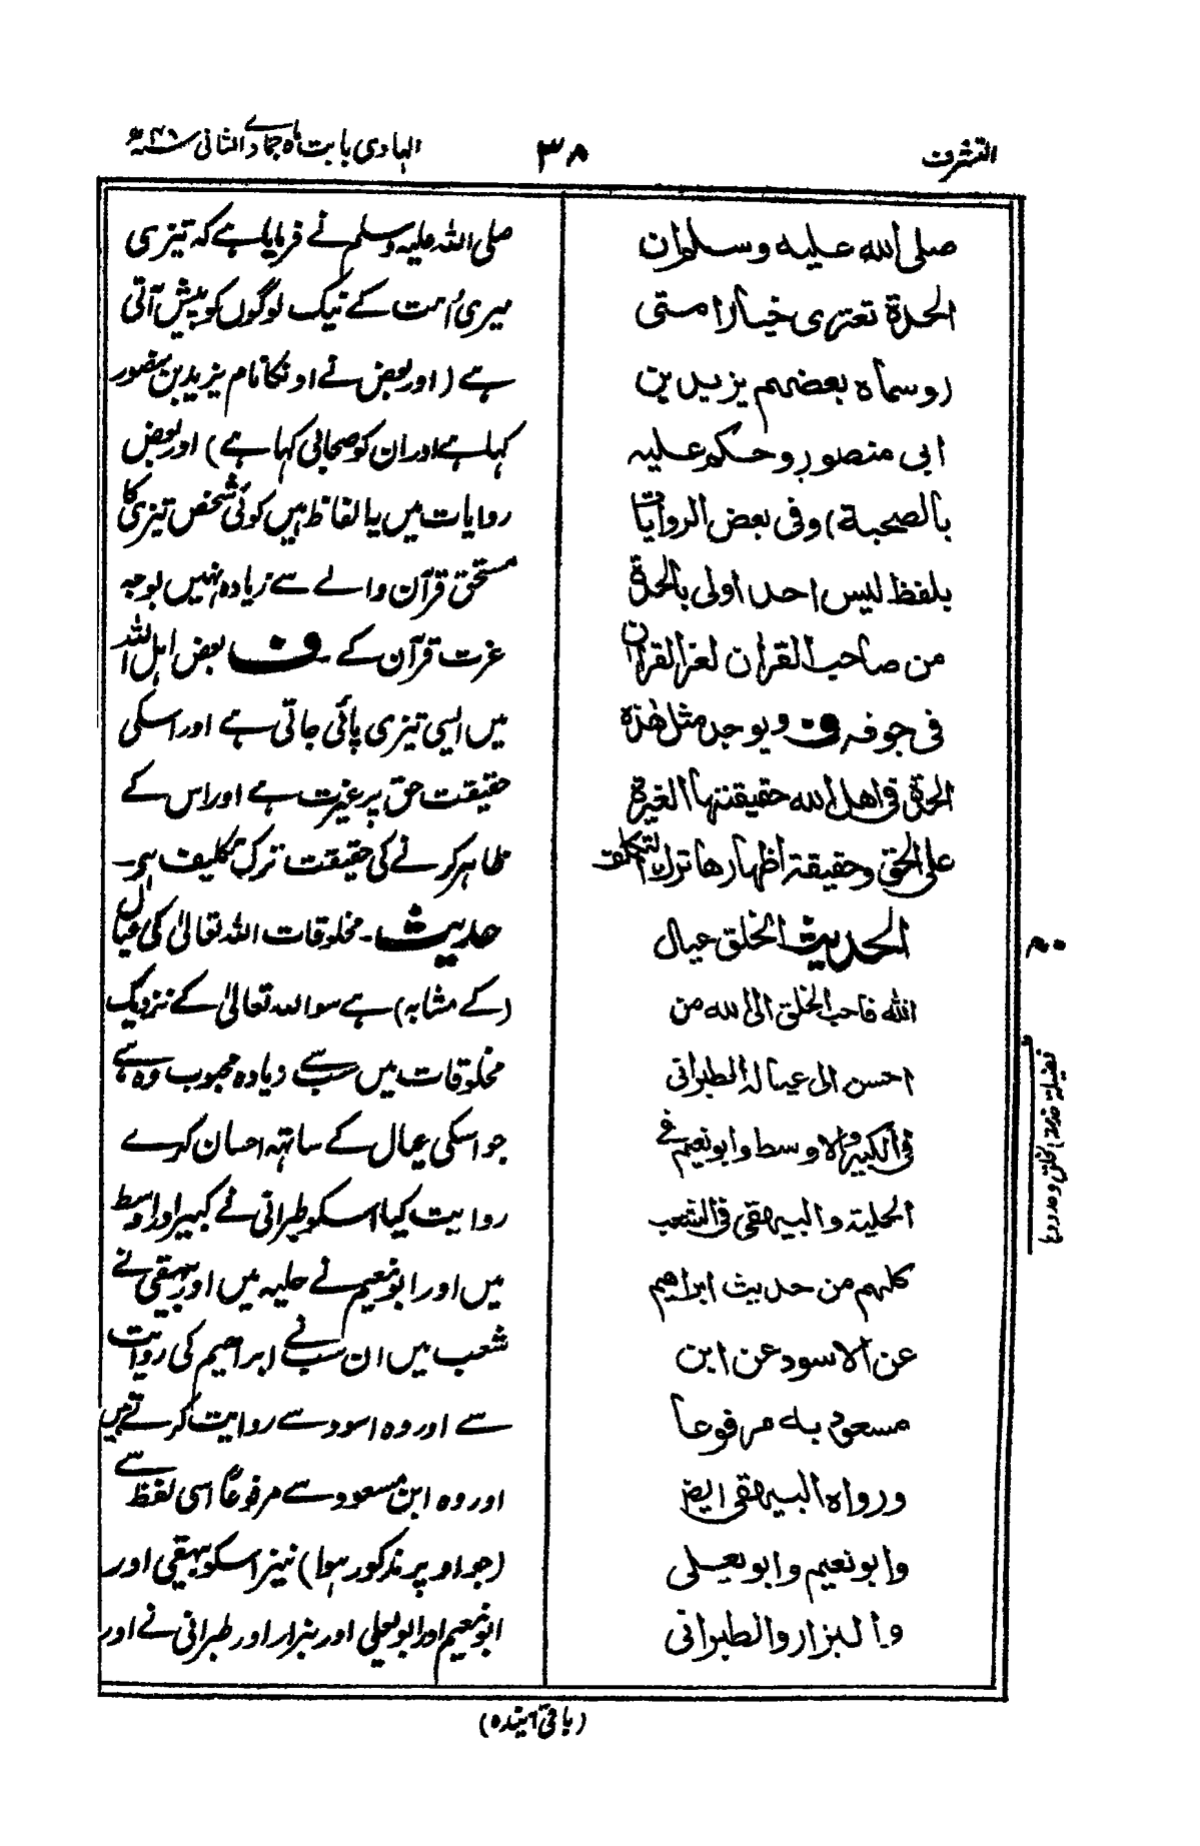 التشرف
۳۸
الہادی بابت ماہ جمادے الثانی
صلی الله علیه وسلم ان
الحدة تعتری خیار امتی
(وسماه بعضهم یزید بن
ابی منصور وحکم علیه
بالصحبة) وفی بعض الروایات
بلفظ لیس احد اولی بالحدة
من صاحب القران لعز القران
فی جوفه ف ویوجد مثل هذه
الحدة فی اهل الله حقیقتها الغیرة
علی الحق وحقیقة اظهارها ترك التکلف
الحدیث الخلق عیال
الله فاحب الخلق الی الله من
احسن الی عیاله الطبرانی
فی الکبیر والاوسط وابو نعیم فی
الحلیة والبیهقی فی الشعب
کلهم من حدیث ابراهیم
عن الاسود عن ابن
مسعود به مرفوعا
ورواه البیهقی ایض
وابو نعیم وابو یعلی
والبزار والطبرانی
صلی اللہ علیہ وسلم نے فرمایا ہے کہ تیزی
میری اُمت کے نیک لوگوں کو پیش آتی
ہے (اور بعض نے اونکا نام یزید بن منصور
کہا ہے اور ان کو صحابی کہا ہے) اور بعض
روایات میں یا لفاظ ہیں کوئی شخص تیزی کا
مستحق قرآن والے سے زیادہ نہیں بوجہ
عزت قرآن کے ۔ ف بعض اہل اللہ
میں ایسی تیزی پائی جاتی ہے اور اسکی
حقیقت حق پر غیرت ہے اور اس کے
ظاہر کرنے کی حقیقت ترک تکلیف ہی۔
حدیث۔ مخلوقات اللہ تعالیٰ کی عیال
(کے مشابہ) ہے سو اللہ تعالیٰ کے نزدیک
مخلوقات میں سب سے زیادہ محبوب وہ ہے
جو اسکی عیال کے ساتھ احسان کرے
روایت کیا اسکو طبرانی نے کبیر اور اوسط
میں اور ابو نعیم نے حلیہ میں اور بیہقی نے
شعب میں ان سب نے ابراہیم کی روایت
سے اور وہ اسود سے روایت کرتے ہیں
اور وہ ابن مسعود سے مرفوعًا اسی لفظ سے
(جو اوپر مذکور ہوا) نیز اسکو بیہقی اور
ابو نعیم اور ابو یعلی اور بزار اور طبرانی نے اور
(باقی آیندہ)